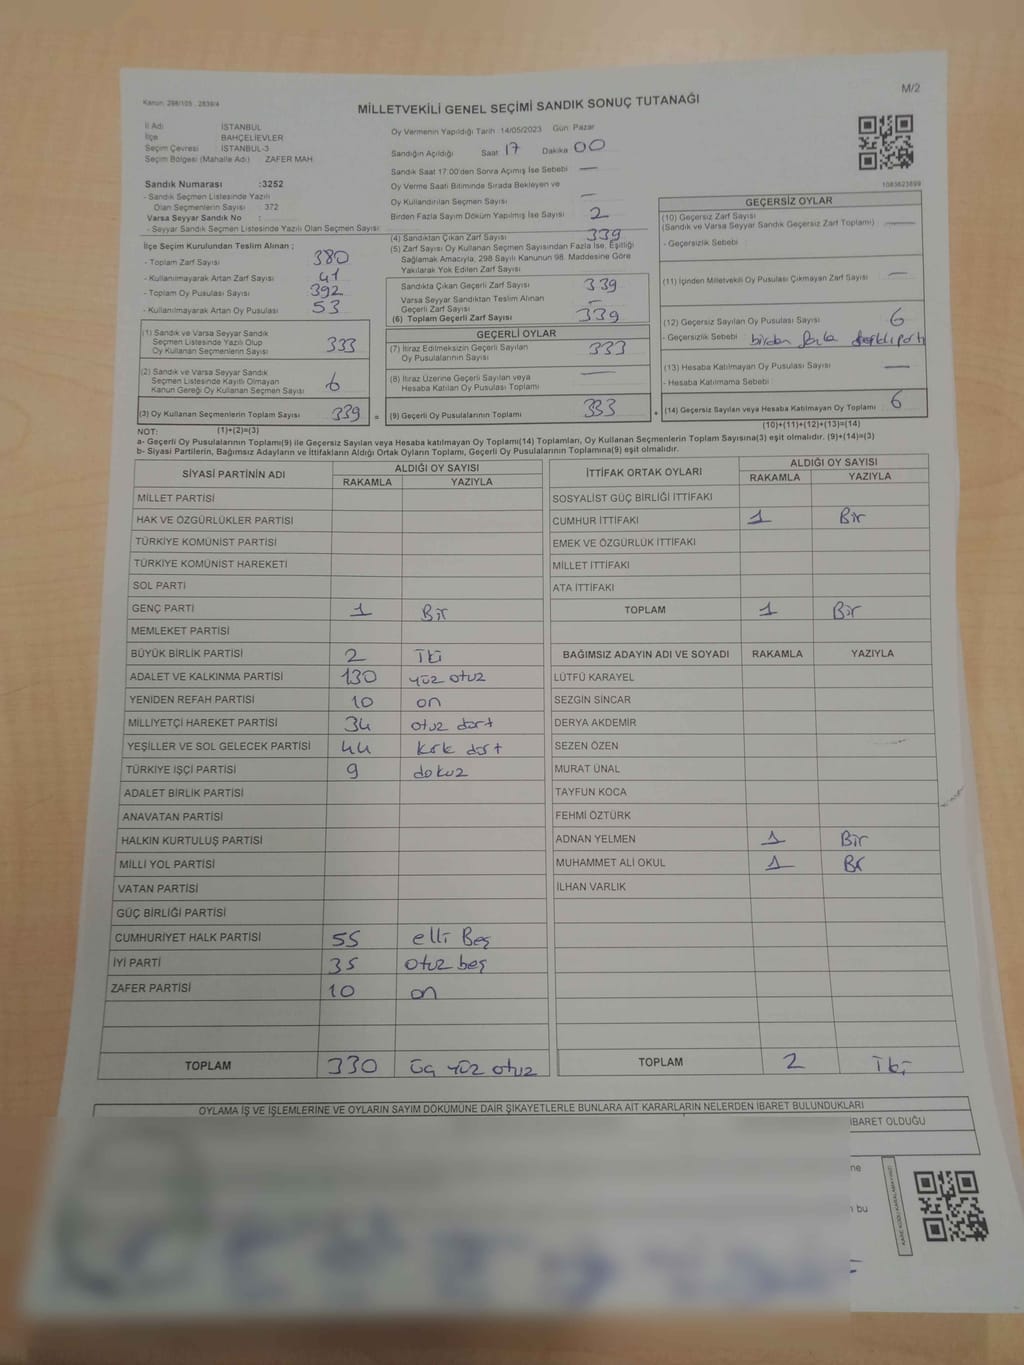 Kanun: 298/105 , 2839/4
M/2
MİLLETVEKİLİ GENEL SEÇİMİ SANDIK SONUÇ TUTANAĞI
İl Adı : İSTANBUL
İlçe : BAHÇELİEVLER
Seçim Çevresi : İSTANBUL-3
Seçim Bölgesi (Mahalle Adı) ZAFER MAH.
Oy Vermenin Yapıldığı Tarih 14/05/2023 Gün: Pazar
Sandığın Açıldığı Saat 17 Dakika 00
Sandık Saat 17:00'den Sonra Açımış İse Sebebi —
Oy Verme Saati Bitiminde Sırada Bekleyen ve
Oy Kullandırılan Seçmen Sayısı —
Birden Fazla Sayım Döküm Yapılmış İse Sayısı 2
1083623899
Sandık Numarası :3252
- Sandık Seçmen Listesinde Yazılı
Olan Seçmenlerin Sayısı : 372
Varsa Seyyar Sandık No :
- Seyyar Sandık Seçmen Listesinde Yazılı Olan Seçmen Sayısı:
İlçe Seçim Kurulundan Teslim Alınan ;
- Toplam Zarf Sayısı 380
- Kullanılmayarak Artan Zarf Sayısı 41
- Toplam Oy Pusulası Sayısı 392
- Kullanılmayarak Artan Oy Pusulası 53
(1) Sandık ve Varsa Seyyar Sandık
Seçmen Listesinde Yazılı Olup
Oy Kullanan Seçmenlerin Sayısı 333
(2) Sandık ve Varsa Seyyar Sandık
Seçmen Listesinde Kayıtlı Olmayan
Kanun Gereği Oy Kullanan Seçmen Sayısı 6
(3) Oy Kullanan Seçmenlerin Toplam Sayısı 339 =
(4) Sandıktan Çıkan Zarf Sayısı 339
(5) Zarf Sayısı Oy Kullanan Seçmen Sayısından Fazla İse, Eşitliği
Sağlamak Amacıyla, 298 Sayılı Kanunun 98. Maddesine Göre
Yakılarak Yok Edilen Zarf Sayısı
Sandıkta Çıkan Geçerli Zarf Sayısı 339
Varsa Seyyar Sandıktan Teslim Alınan
Geçerli Zarf Sayısı —
(6) Toplam Geçerli Zarf Sayısı 339
GEÇERLİ OYLAR
(7) İtiraz Edilmeksizin Geçerli Sayılan
Oy Pusulalarının Sayısı 333
(8) İtiraz Üzerine Geçerli Sayılan veya
Hesaba Katılan Oy Pusulası Toplamı —
(9) Geçerli Oy Pusulalarının Toplamı 333 +
GEÇERSİZ OYLAR
(10) Geçersiz Zarf Sayısı
(Sandık ve Varsa Seyyar Sandık Geçersiz Zarf Toplamı) —
- Geçersizlik Sebebi :
(11) İçinden Milletvekili Oy Pusulası Çıkmayan Zarf Sayısı —
(12) Geçersiz Sayılan Oy Pusulası Sayısı 6
- Geçersizlik Sebebi birden fazla
(13) Hesaba Katılmayan Oy Pusulası Sayısı —
- Hesaba Katılmama Sebebi :
(14) Geçersiz Sayılan veya Hesaba Katılmayan Oy Toplamı 6
NOT: (1)+(2)=(3)
(10)+(11)+(12)+(13)=(14)
a- Geçerli Oy Pusulalarının Toplamı(9) ile Geçersiz Sayılan veya Hesaba katılmayan Oy Toplamı(14) Toplamları, Oy Kullanan Seçmenlerin Toplam Sayısına(3) eşit olmalıdır. (9)+(14)=(3)
b- Siyasi Partilerin, Bağımsız Adayların ve İttifakların Aldığı Ortak Oyların Toplamı, Geçerli Oy Pusulalarının Toplamına(9) eşit olmalıdır.
SİYASİ PARTİNİN ADI ALDIĞI OY SAYISI
RAKAMLA YAZIYLA
MİLLET PARTİSİ
HAK VE ÖZGÜRLÜKLER PARTİSİ
TÜRKİYE KOMÜNİST PARTİSİ
TÜRKİYE KOMÜNİST HAREKETİ
SOL PARTİ
GENÇ PARTİ 1 Bir
MEMLEKET PARTİSİ
BÜYÜK BİRLİK PARTİSİ 2 İki
ADALET VE KALKINMA PARTİSİ 130 yüz otuz
YENİDEN REFAH PARTİSİ 10 on
MİLLİYETÇİ HAREKET PARTİSİ 34 otuz dört
YEŞİLLER VE SOL GELECEK PARTİSİ 44 kırk dört
TÜRKİYE İŞÇİ PARTİSİ 9 dokuz
ADALET BİRLİK PARTİSİ
ANAVATAN PARTİSİ
HALKIN KURTULUŞ PARTİSİ
MİLLİ YOL PARTİSİ
VATAN PARTİSİ
GÜÇ BİRLİĞİ PARTİSİ
CUMHURİYET HALK PARTİSİ 55 elli Beş
İYİ PARTİ 35 otuz beş
ZAFER PARTİSİ 10 on
TOPLAM 330 üç yüz otuz
İTTİFAK ORTAK OYLARI ALDIĞI OY SAYISI
RAKAMLA YAZIYLA
SOSYALİST GÜÇ BİRLİĞİ İTTİFAKI
CUMHUR İTTİFAKI 1 Bir
EMEK VE ÖZGÜRLÜK İTTİFAKI
MİLLET İTTİFAKI
ATA İTTİFAKI
TOPLAM 1 Bir
BAĞIMSIZ ADAYIN ADI VE SOYADI RAKAMLA YAZIYLA
LÜTFÜ KARAYEL
SEZGİN SİNCAR
DERYA AKDEMİR
SEZEN ÖZEN
MURAT ÜNAL
TAYFUN KOCA
FEHMİ ÖZTÜRK
ADNAN YELMEN 1 Bir
MUHAMMET ALİ OKUL 1 Bir
İLHAN VARLIK
TOPLAM 2 İki
OYLAMA İŞ VE İŞLEMLERİNE VE OYLARIN SAYIM DÖKÜMÜNE DAİR ŞİKAYETLERLE BUNLARA AİT KARARLARIN NELERDEN İBARET BULUNDUKLARI
İBARET OLDUĞU
ne
bu
KARE KODU KARALAMAYINIZ!